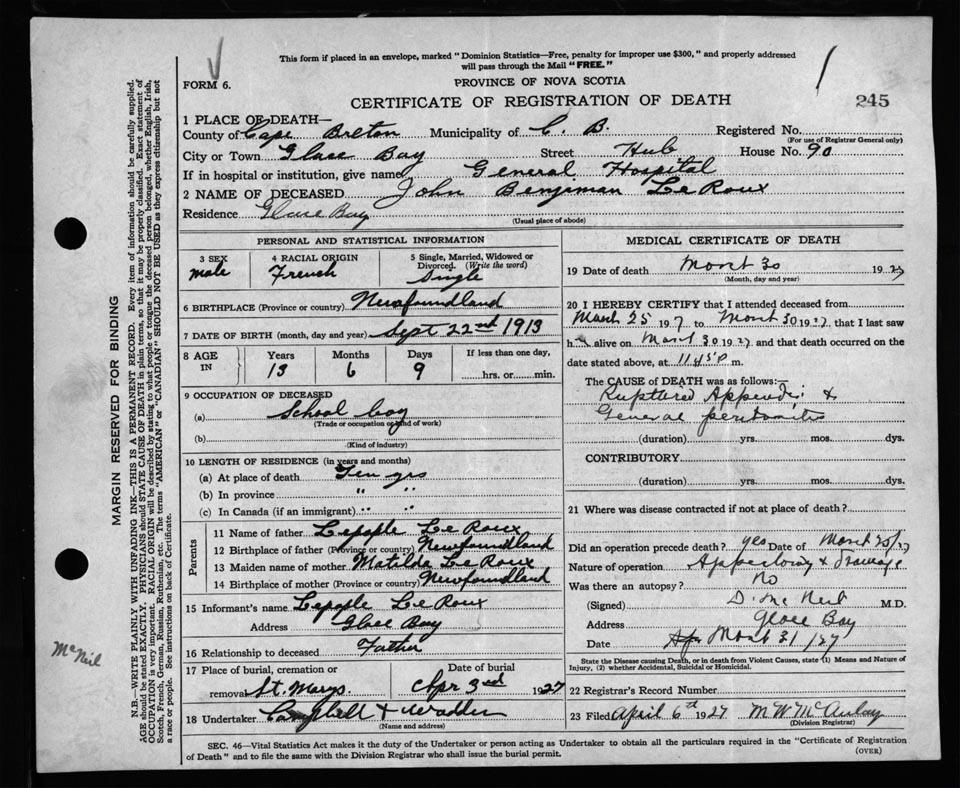 This form if placed in an envelope, marked "Dominion Statistics—Free, penalty for improper use $300," and properly addressed
will pass through the Mail "FREE."
FORM 6.
PROVINCE OF NOVA SCOTIA
CERTIFICATE OF REGISTRATION OF DEATH
245
1 PLACE OF DEATH—
County of Cape Breton Municipality of C. B. Registered No.
(For use of Registrar General only)
City or Town Glace Bay Street Hub House No. 90
If in hospital or institution, give name General Hospital
2 NAME OF DECEASED John Benjaman Le Roux
Residence Glace Bay
(Usual place of abode)
PERSONAL AND STATISTICAL INFORMATION
3 SEX male
4 RACIAL ORIGIN French
5 Single, Married, Widowed or Divorced. (Write the word) Single
6 BIRTHPLACE (Province or country) Newfoundland
7 DATE OF BIRTH (month, day and year) Sept 22nd 1913
8 AGE IN Years Months Days If less than one day,
13 6 9 hrs. or min.
9 OCCUPATION OF DECEASED
(a) School boy
(Trade or occupation or kind of work)
(b)
(Kind of industry)
10 LENGTH OF RESIDENCE (in years and months)
(a) At place of death Ten yrs
(b) In province " "
(c) In Canada (if an immigrant) " "
Parents
11 Name of father Le Roux
12 Birthplace of father (Province or country) Newfoundland
13 Maiden name of mother Matilda Le Roux
14 Birthplace of mother (Province or country) Newfoundland
15 Informant's name Le Roux
Address Glace Bay
16 Relationship to deceased Father
17 Place of burial, cremation or removal St. Marys. Date of burial Apr 3rd 1927
18 Undertaker Campbell +
(Name and address)
MEDICAL CERTIFICATE OF DEATH
19 Date of death 30 1927
(Month, day and year)
20 I HEREBY CERTIFY that I attended deceased from
March 25 1927 to 30 1927, that I last saw
h alive on 30 1927 and that death occurred on the
date stated above, at 11.45 P m.
The CAUSE of DEATH was as follows:—
Ruptured Appendix &
General peritonitis
(duration) yrs. mos. dys.
CONTRIBUTORY
(duration) yrs. mos. dys.
21 Where was disease contracted if not at place of death?
Did an operation precede death? yes Date of 25/27
Nature of operation & Drainage
Was there an autopsy? No
(Signed) D. McNeil M.D.
Address Glace Bay
Date 31/27
State the Disease causing Death, or in death from Violent Causes, state (1) Means and Nature of Injury, (2) whether Accidental, Suicidal or Homicidal.
22 Registrar's Record Number
23 Filed April 6th 1927 M W McAulay
(Division Registrar)
SEC. 46—Vital Statistics Act makes it the duty of the Undertaker or person acting as Undertaker to obtain all the particulars required in the "Certificate of Registration
of Death" and to file the same with the Division Registrar who shall issue the burial permit.
(OVER)
MARGIN RESERVED FOR BINDING
N.B.—WRITE PLAINLY WITH UNFADING INK—THIS IS A PERMANENT RECORD. Every item of information should be carefully supplied.
AGE should be stated EXACTLY. PHYSICIANS should STATE CAUSE OF DEATH in plain terms, so that it may be properly classified. Exact statement of
OCCUPATION is very important. RACIAL ORIGIN will be described by stating to what people or tongue the deceased person belonged, whether English, Irish,
Scotch, French, German, Russian, Ruthenian, etc. The terms "AMERICAN" or "CANADIAN" SHOULD NOT BE USED as they express citizenship but not
a race or people. See instructions on back of Certificate.
McNeil